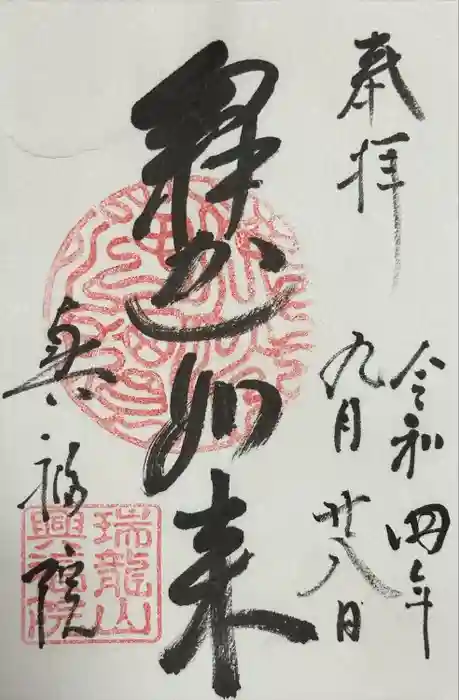 奉拝
令和四年
九月廿八日
釋迦如来
興福院
瑞龍山
興福院